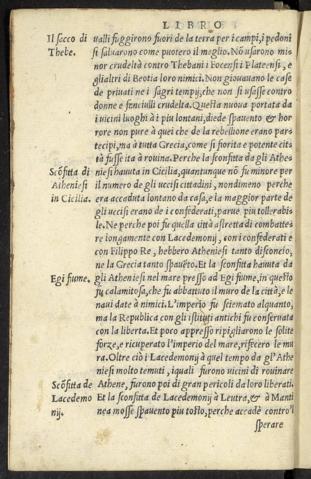 LIBRO
Il sacco di
Thebe.
ualli fuggirono fuori de la terra per i campi, i pedoni
si saluarono come puotero il meglio. Nõ usarono mi
nor crudeltà contro Thebani i Focensi i Plateensi, e
gli altri di Beotia loro nimici. Non giouauano le case
de priuati ne i sagri tempij, che non si usasse contro
donne e fanciulli crudelta. Questa nuoua portata da
i uicini luoghi à i piu lontani, diede spauento & hor
rore non pure à quei che de la rebellione erano par-
tecipi, ma à tutta Grecia, come si fiorita e potente cit
tà fusse ita à rouina. Perche la sconfitta da gli Athe
Scõfitta di
Atheniesi
in Cicilia.
niesi hauuta in Cicilia, quantunque nõ fu minore per
il numero de gli uccisi cittadini, nondimeno perche
era accaduta lontano da casa, e la maggior parte de
gli uccisi erano de i cõfederati, parue piu tollerabi-
le. Ne perche poi fu quella città astretta di combatte
re longamente con Lacedemonij, con i confederati e
con Filippo Re, hebbero Atheniesi tanto disconcio,
ne la Grecia tanto spauẽto. Et la sconfitta hauuta da
Egi fiume.
gli Atheniesi nel mare presso ad Egi fiume, in questo
fu calamitosa, che fu abbattuto il muro de la città, e le
naui date à nimici. L'imperio fu sciemato alquanto,
ma la Republica con gli istituti antichi fu conseruata
con la liberta. Et poco appresso ripigliarono le solite
forze, e ricuperato l'imperio del mare, rifecero le mu
ra. Oltre ciò i Lacedemonij à quel tempo da gl'Athe
niesi molto temuti, i quali furono uicini di rouinare
Scõfitta de
Lacedemo
nij.
Athene, furono poi di gran pericoli da loro liberati.
Et la sconfitta de Lacedemonij à Leutra, & à Manti
nea mosse spauento piu tosto, perche accadè contro'l
sperare